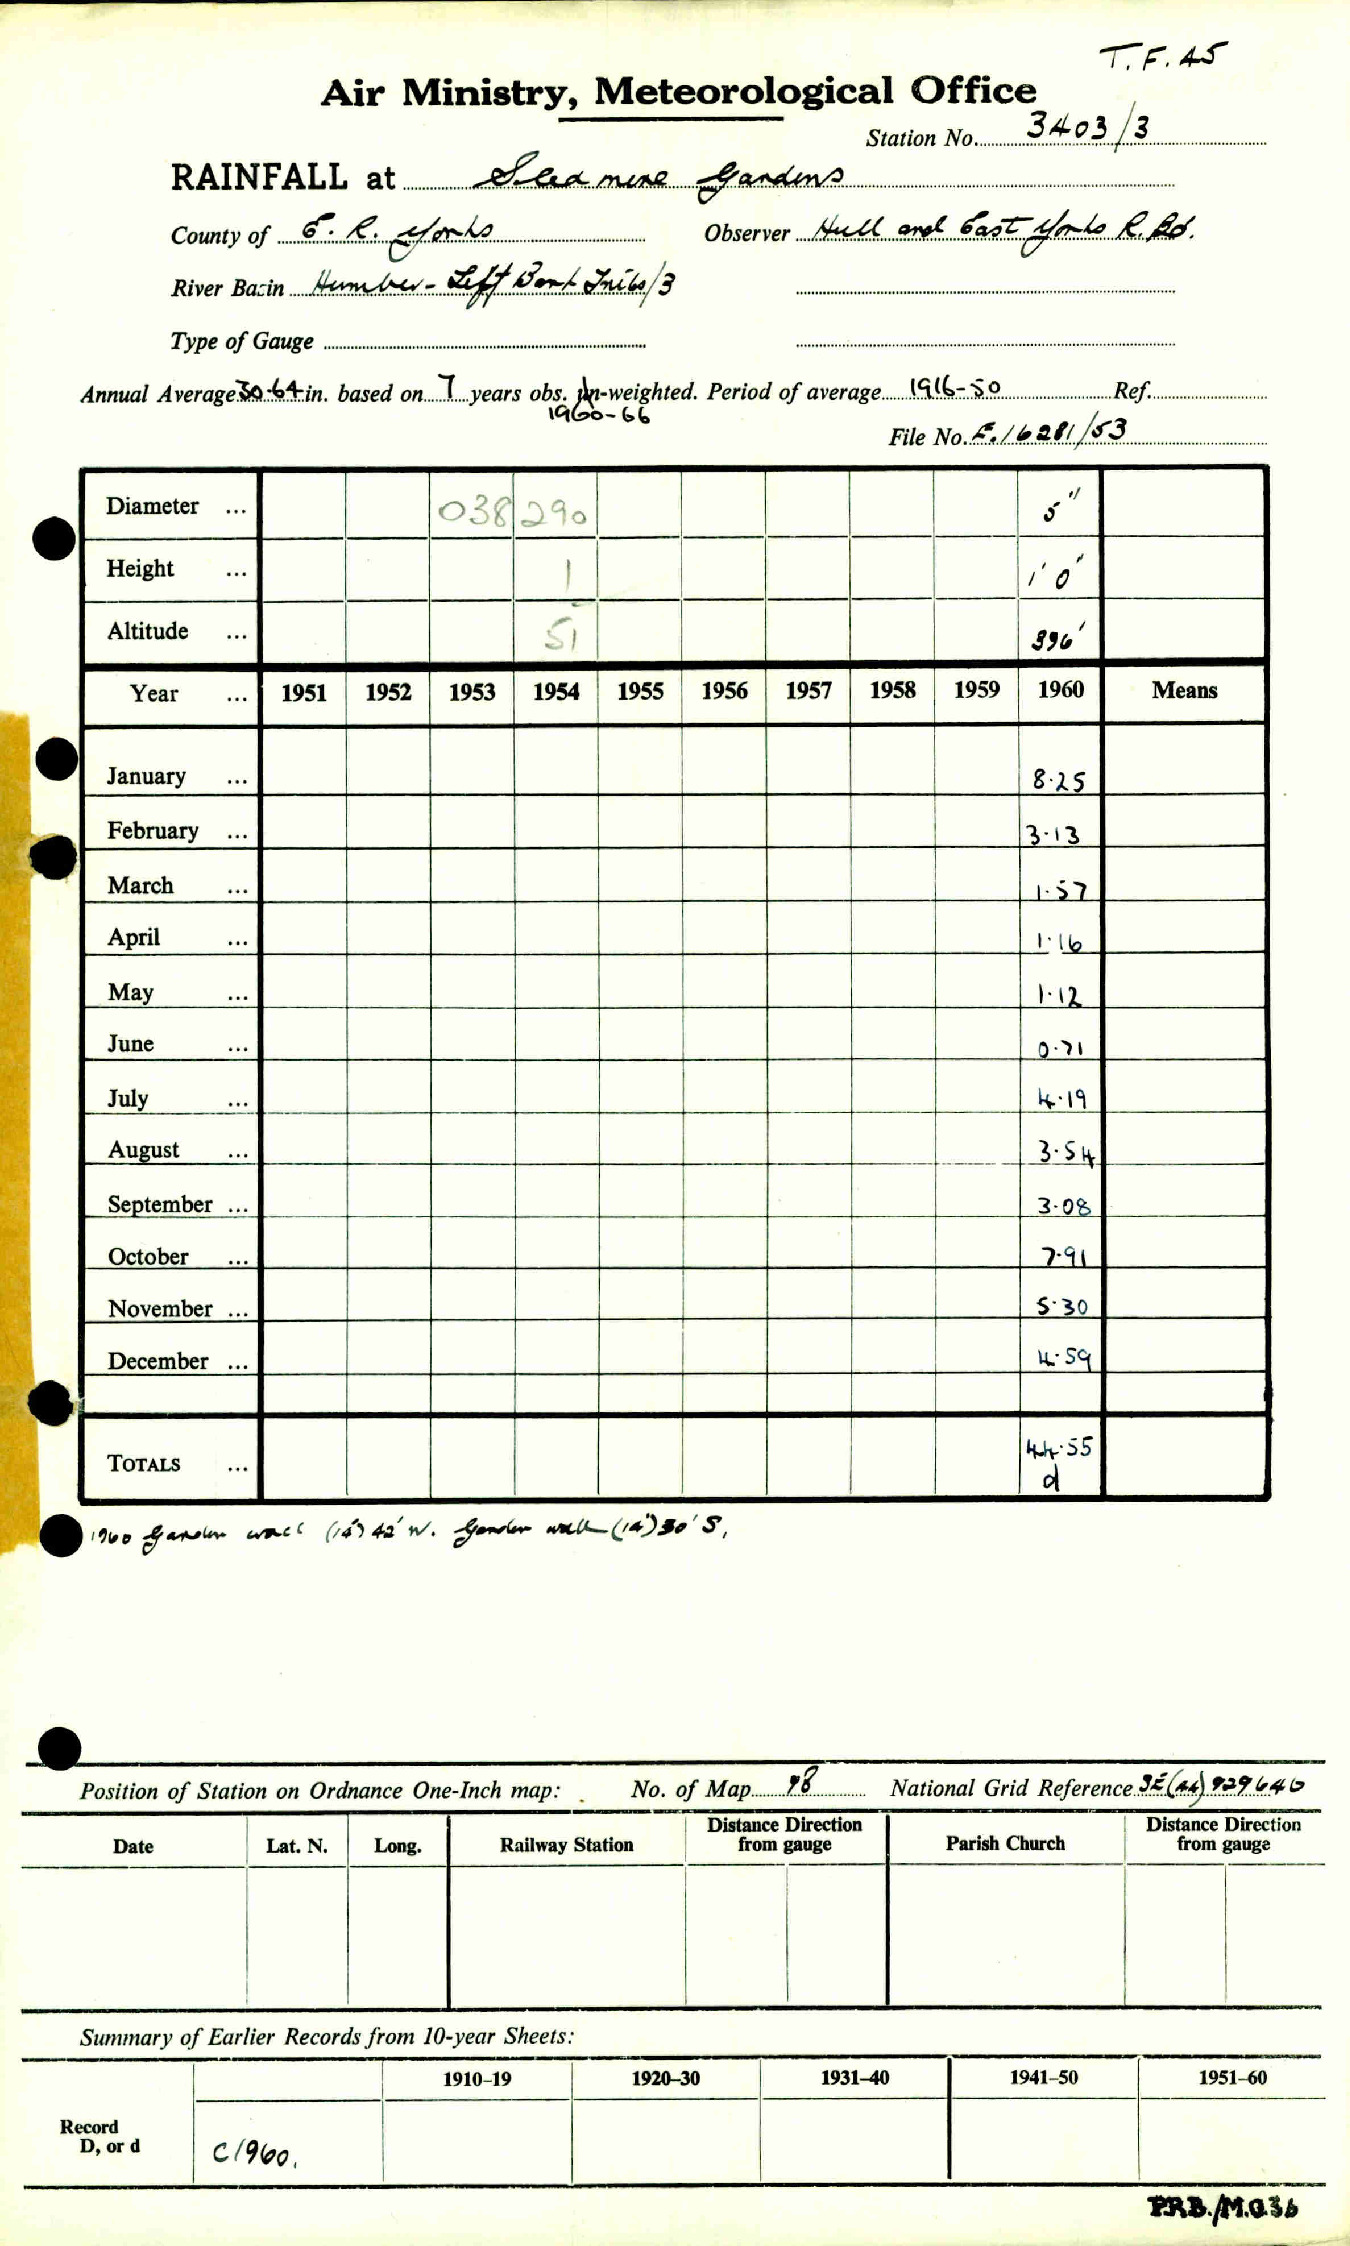 T.F. 45
Air Ministry, Meteorological Office
Station No. 3403/3
RAINFALL at Sledmere Gardens
County of E. R. Yorks Observer Hull and East Yorks R. Bd.
River Basin Humber - Left Bank Tribs/3
Type of Gauge
Annual Average 30·64 in. based on 7 years obs. un-weighted. Period of average 1916-50 Ref.
1960-66
File No. F.16281/53
Diameter ... 038 290 5"
Height ... 1 1' 0"
Altitude ... 51 396'
Year ... 1951 1952 1953 1954 1955 1956 1957 1958 1959 1960 Means
January ... 8·25
February ... 3·13
March ... 1·57
April ... 1·16
May ... 1·12
June ... 0·71
July ... 4·19
August ... 3·54
September ... 3·08
October ... 7·91
November ... 5·30
December ... 4·59
TOTALS ... 44·55
d
1960 Garden wall (14') 42' W. Garden wall (14') 50' S.
Position of Station on Ordnance One-Inch map: No. of Map 98 National Grid Reference SE(44) 929646
Date Lat. N. Long. Railway Station Distance Direction from gauge Parish Church Distance Direction from gauge
Summary of Earlier Records from 10-year Sheets:
1910–19 1920–30 1931–40 1941–50 1951–60
Record
D, or d C1960.
P.R.B./M.O.36